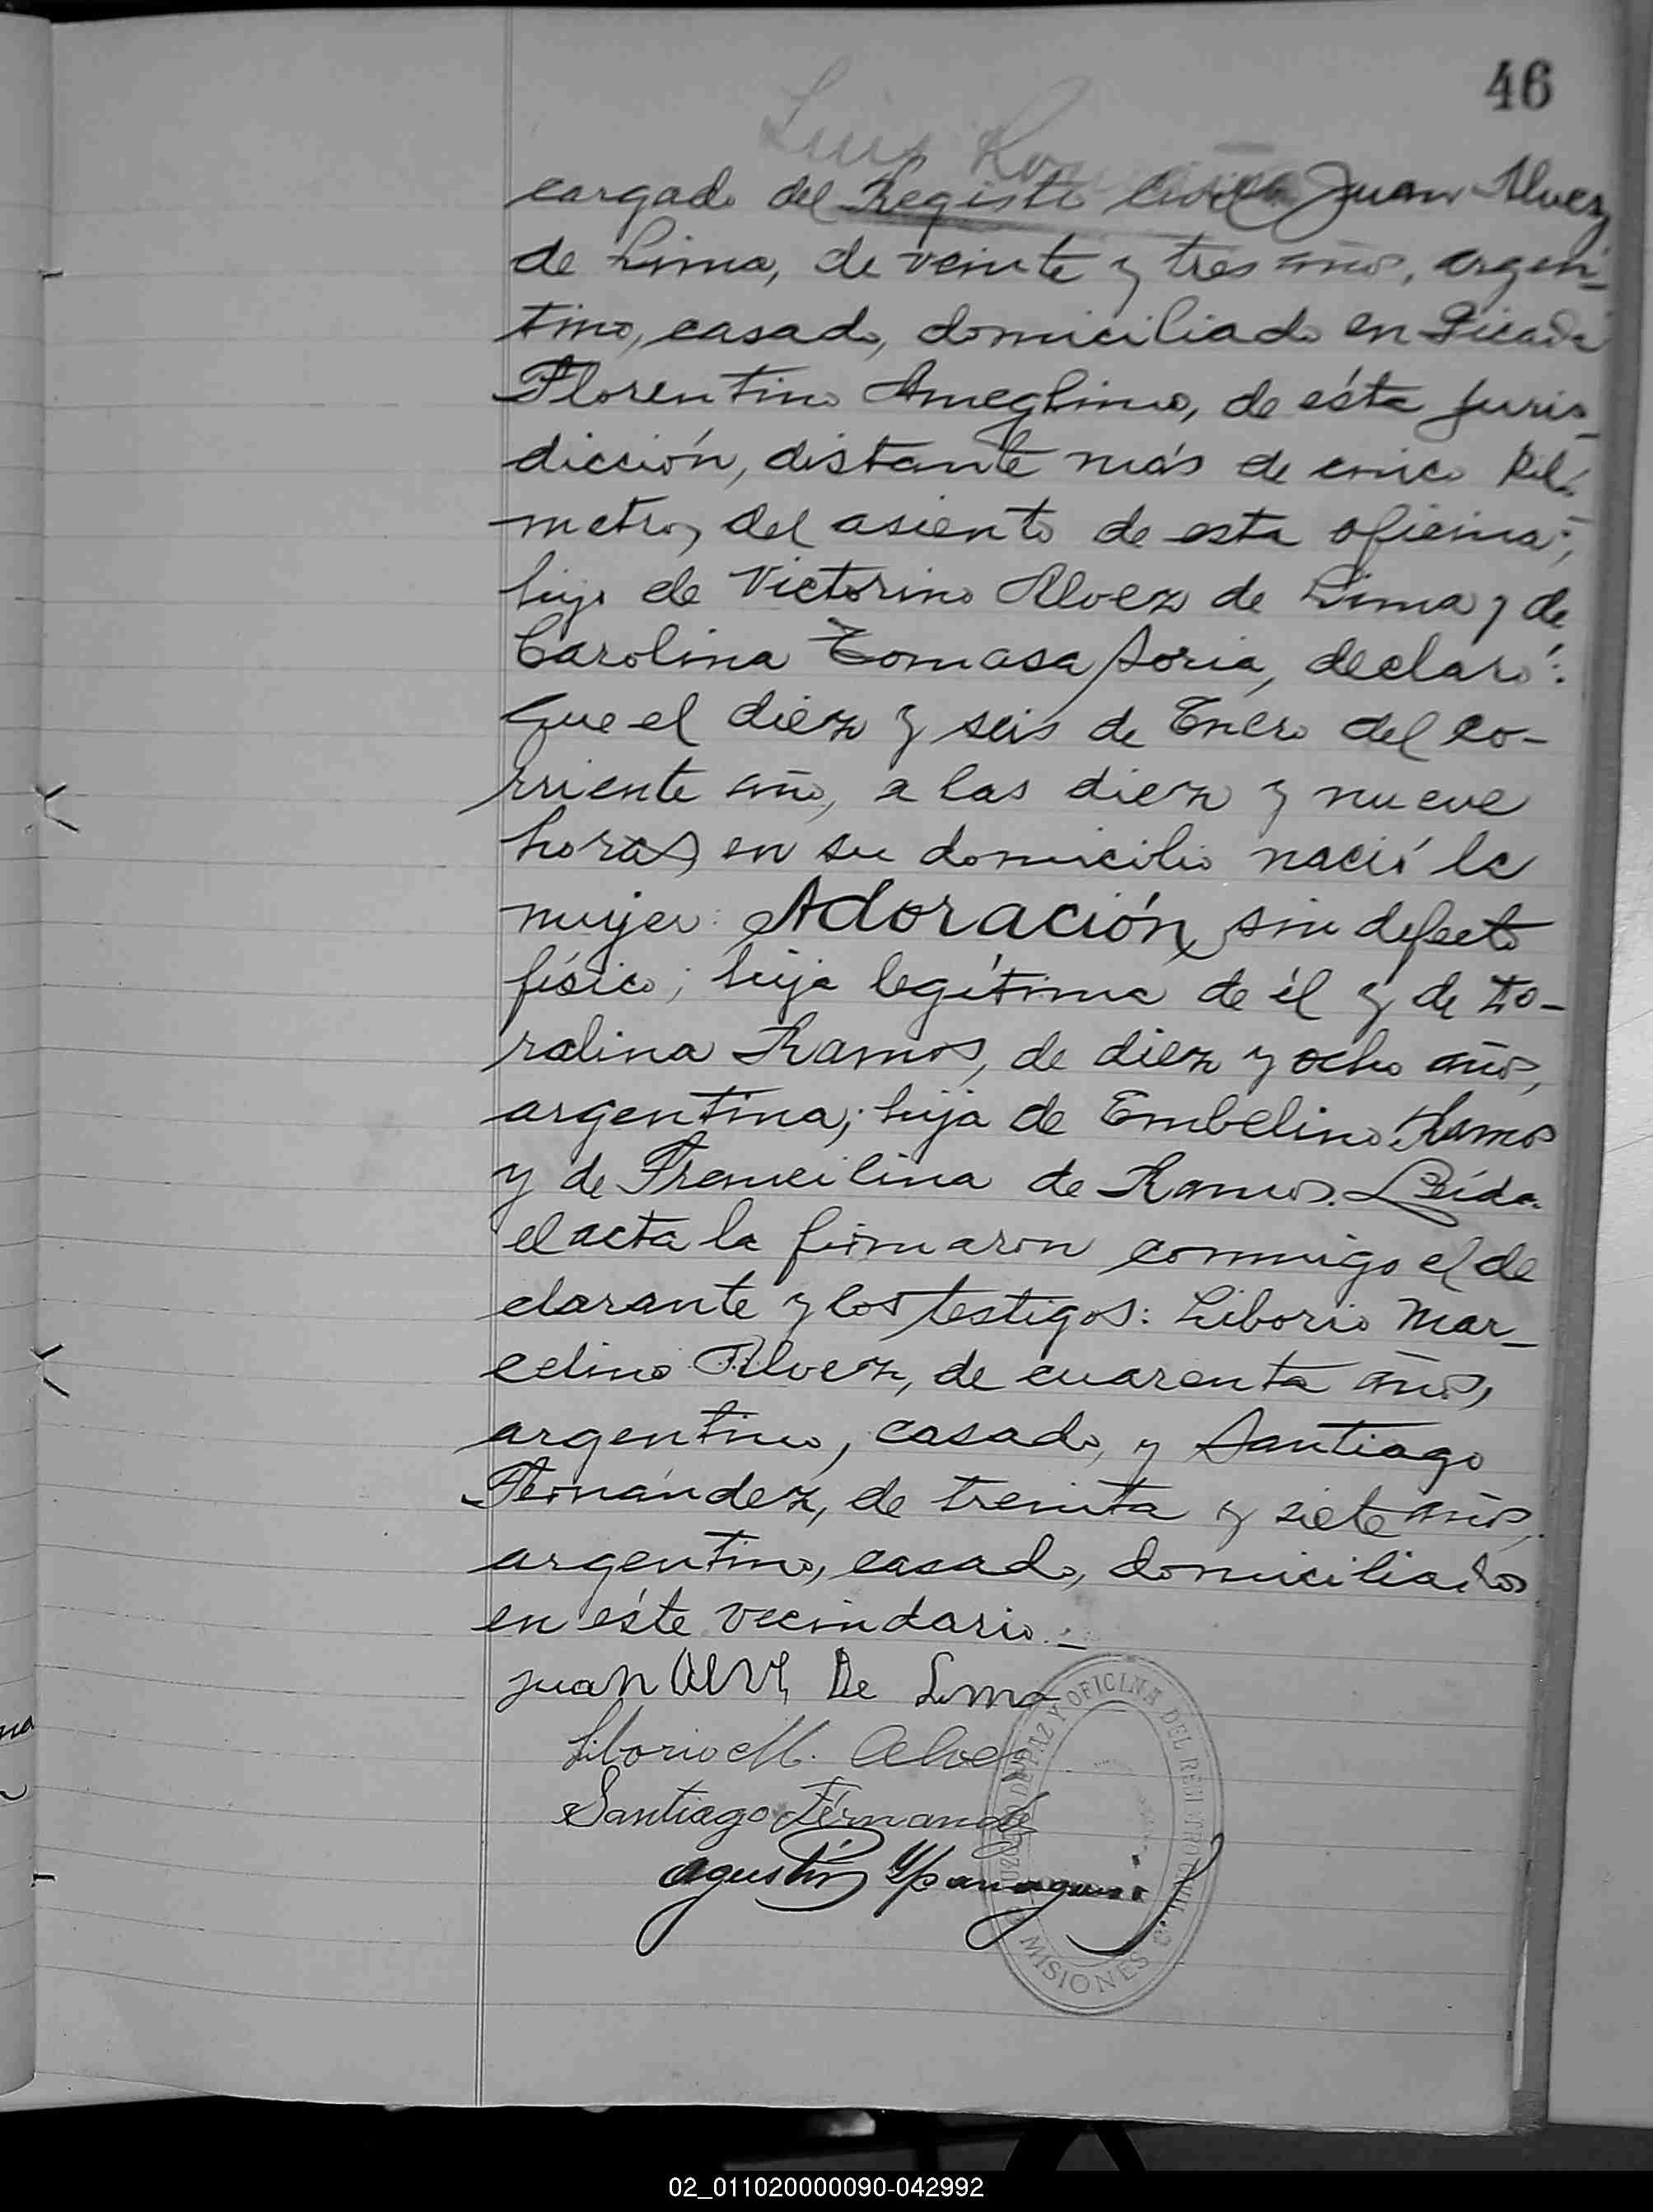 46
Luis
cargado del Registro Civil, Juan Alvez
de Lima, de veinte y tres años, argen-
tino, casado, domiciliado en Picada
Florentino Ameghino, de ésta juris-
dicción, distante más de cinco kiló-
metros del asiento de esta oficina;
hijo de Victorino Alvez de Lima y de
Carolina Tomasa Soria, declaró:
Que el diez y seis de Enero del co-
rriente año, a las diez y nueve
horas, en su domicilio nació la
mujer: Adoración, sin defecto
físico; hija legítima de él y de Do-
ralina Ramos, de diez y ocho años,
argentina; hija de Embelino Ramos
y de Francilina de Ramos. Leída
el acta la firmaron conmigo el de
clarante y los testigos: Liborio Mar-
celino Alvez, de cuarenta años,
argentino, casado, y Santiago
Fernández, de treinta y siete años,
argentino, casado, domiciliados
en éste vecindario.-
Juan Alvez De Lima
Liborio M. Alvez
Santiago Fernandez
Agustín
JUZGADO DE PAZ Y OFICINA DEL REGISTRO CIVIL
MISIONES
02_011020000090-042992